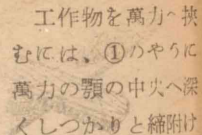 工作物を萬力へ挾
むには、①のやうに
萬力の顎の中央へ深
くしつかりと締附け